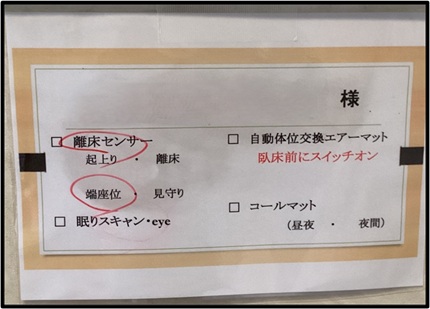 様
□ 離床センサー
起上り ・ 離床
端座位 ・ 見守り
□ 眠りスキャン・eye
□ 自動体位交換エアーマット
臥床前にスイッチオン
□ コールマット
(昼夜 ・ 夜間)